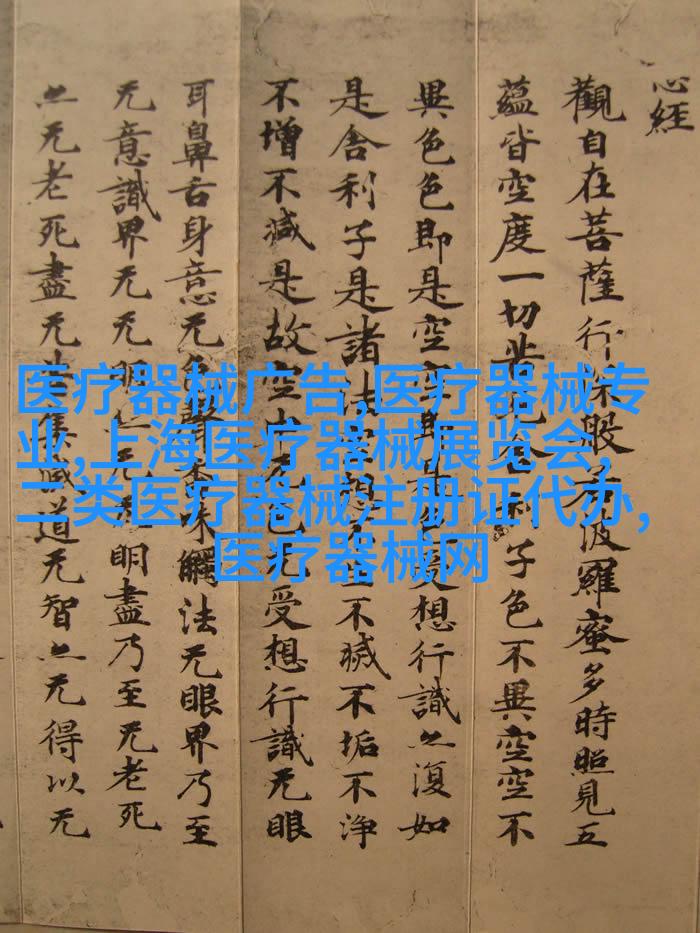 心經
觀自在菩薩行深般若波羅蜜多時照見五
蘊皆空度一切苦厄舍利子色不異空空不
異色色即是空空即是色受想行識亦復如
是舍利子是諸法空相不生不滅不垢不淨
不增不減是故空中无色无受想行識无眼
耳鼻舌身意无色聲香味觸法无眼界乃至
无意識界无无明亦无无明盡乃至无老死
亦无老死盡无苦集滅道无智亦无得以无
医疗器械广告,医疗器械专
业,上海医疗器械展览会,
二类医疗器械注册证代办,
医疗器械网